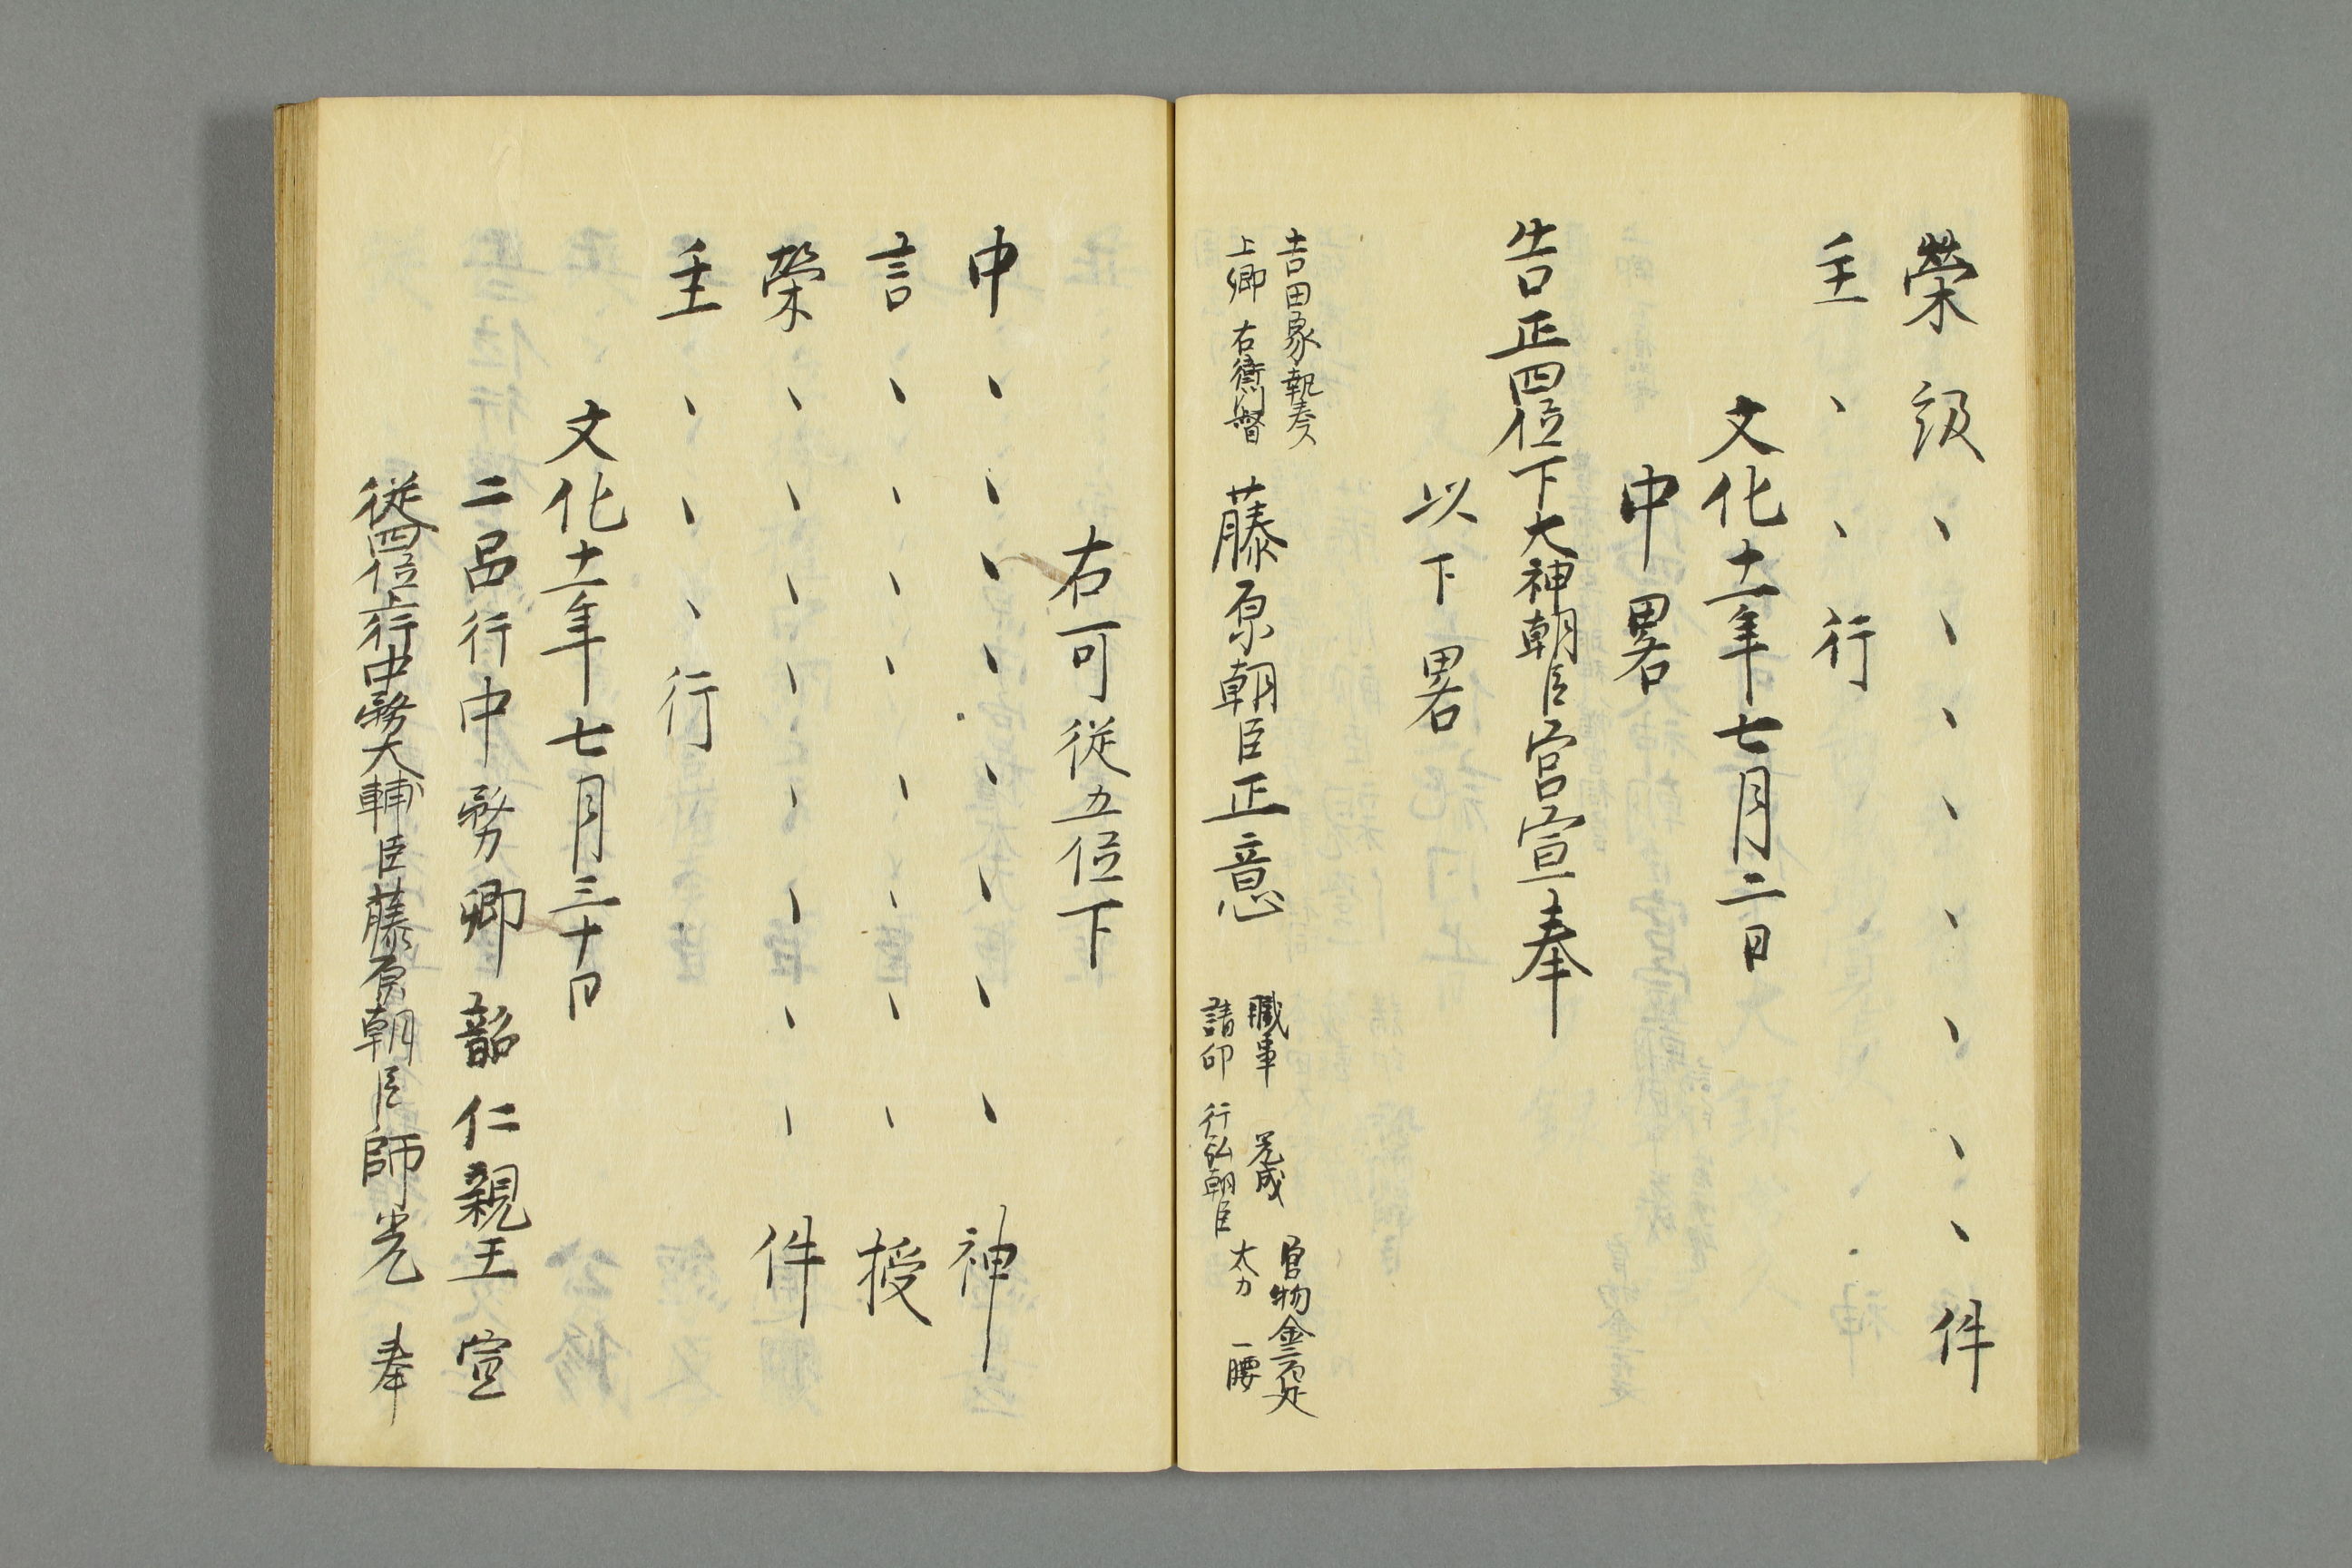 榮級、、、、、、、、件
主、、行
文化十一年七月二日
中畧
告正四位下大神朝臣宮宣奉
以下畧
吉田家執奏
上卿 右衛門督
藤原朝臣正意
職事 光成
請印 行弘朝臣
官物金三百疋
太刀 一腰
右可従五位下
中、、、、、、、、神
言、、、、、、、、授
榮、、、、、、、、件
主、、、行
文化十一年七月三十日
二品行中務卿韶仁親王宣
従四位上行中務大輔臣藤原朝臣師光奉